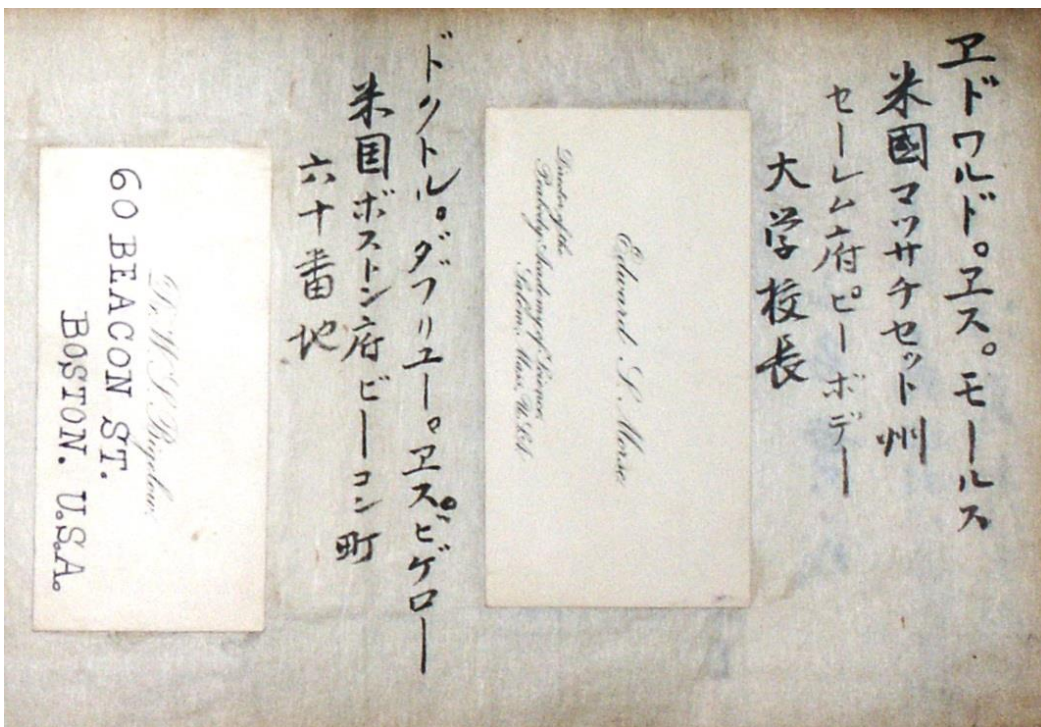 ヱドワルド。ヱス。モールス
米國マッサチセット州
セーレム府ピーボデー
大学校長
Edward S. Morse.
Director of the
Peabody Academy of Science,
Salem, Mass, U.S.A.
ドクトル。ダブリユー。ヱス。ビゲロー
米国ボストン府ビーコン町
六十番地
Dr. W. S. Bigelow.
60 BEACON ST.
BOSTON. U.S.A.